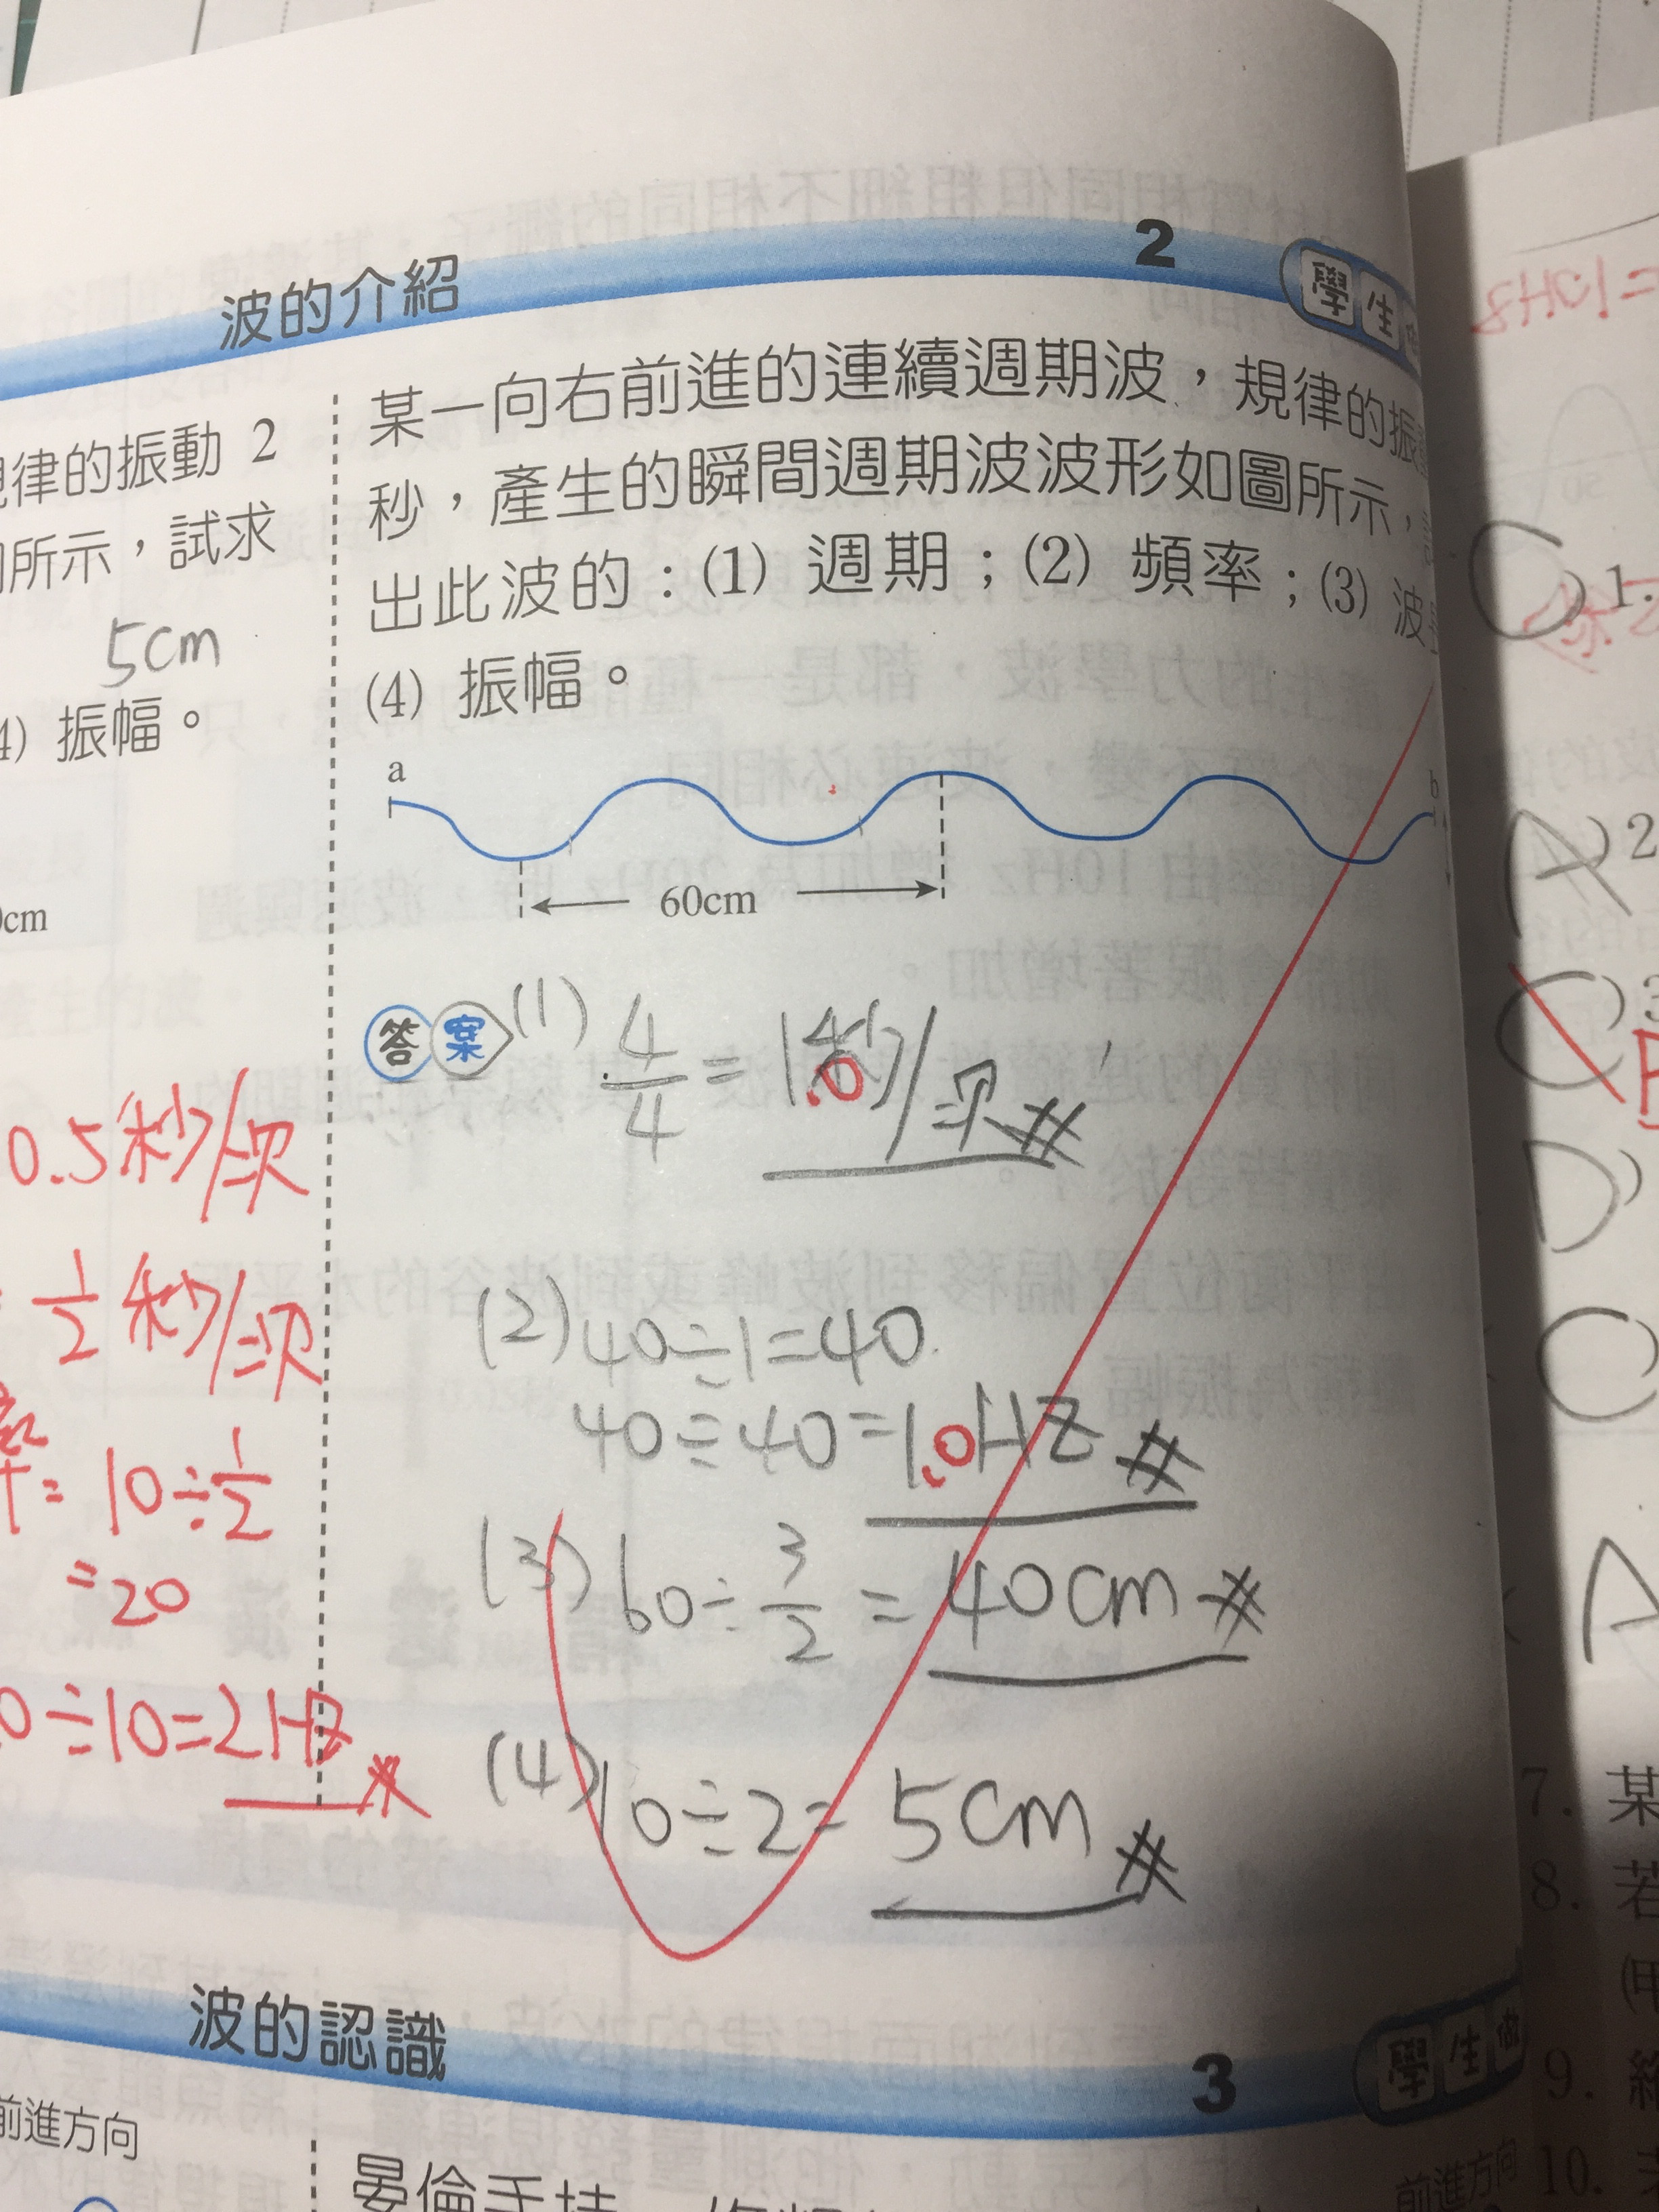 波的介紹
2
學生
規律的振動 2
所示，試求
5cm
4) 振幅。
cm
0.5秒/次
1/2 秒/次
= 10÷1/2
=20
0÷10=2Hz
某一向右前進的連續週期波，規律的振
秒，產生的瞬間週期波波形如圖所示，
出此波的：(1) 週期；(2) 頻率；(3) 波
(4) 振幅。
a
b
60cm
答案
(1) 4/4=1.0 秒/次#
(2) 40÷1=40
40÷40=1.0HZ#
(3) 60÷3/2=40cm#
(4) 10÷2=5cm#
波的認識
3
學生做
前進方向
晏倫手持
前進方向
C)1.
A)2
C)3
D)
C
A
7. 某
8. 若
(甲
9.
10.